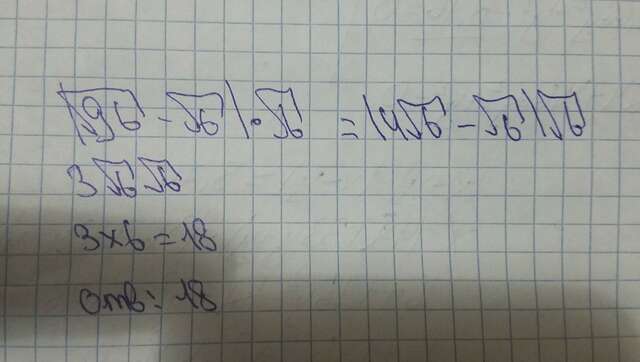 (√96 - √6) · √6 = (4√6 - √6)√6
3√6√6
3×6 = 18
отв: 18